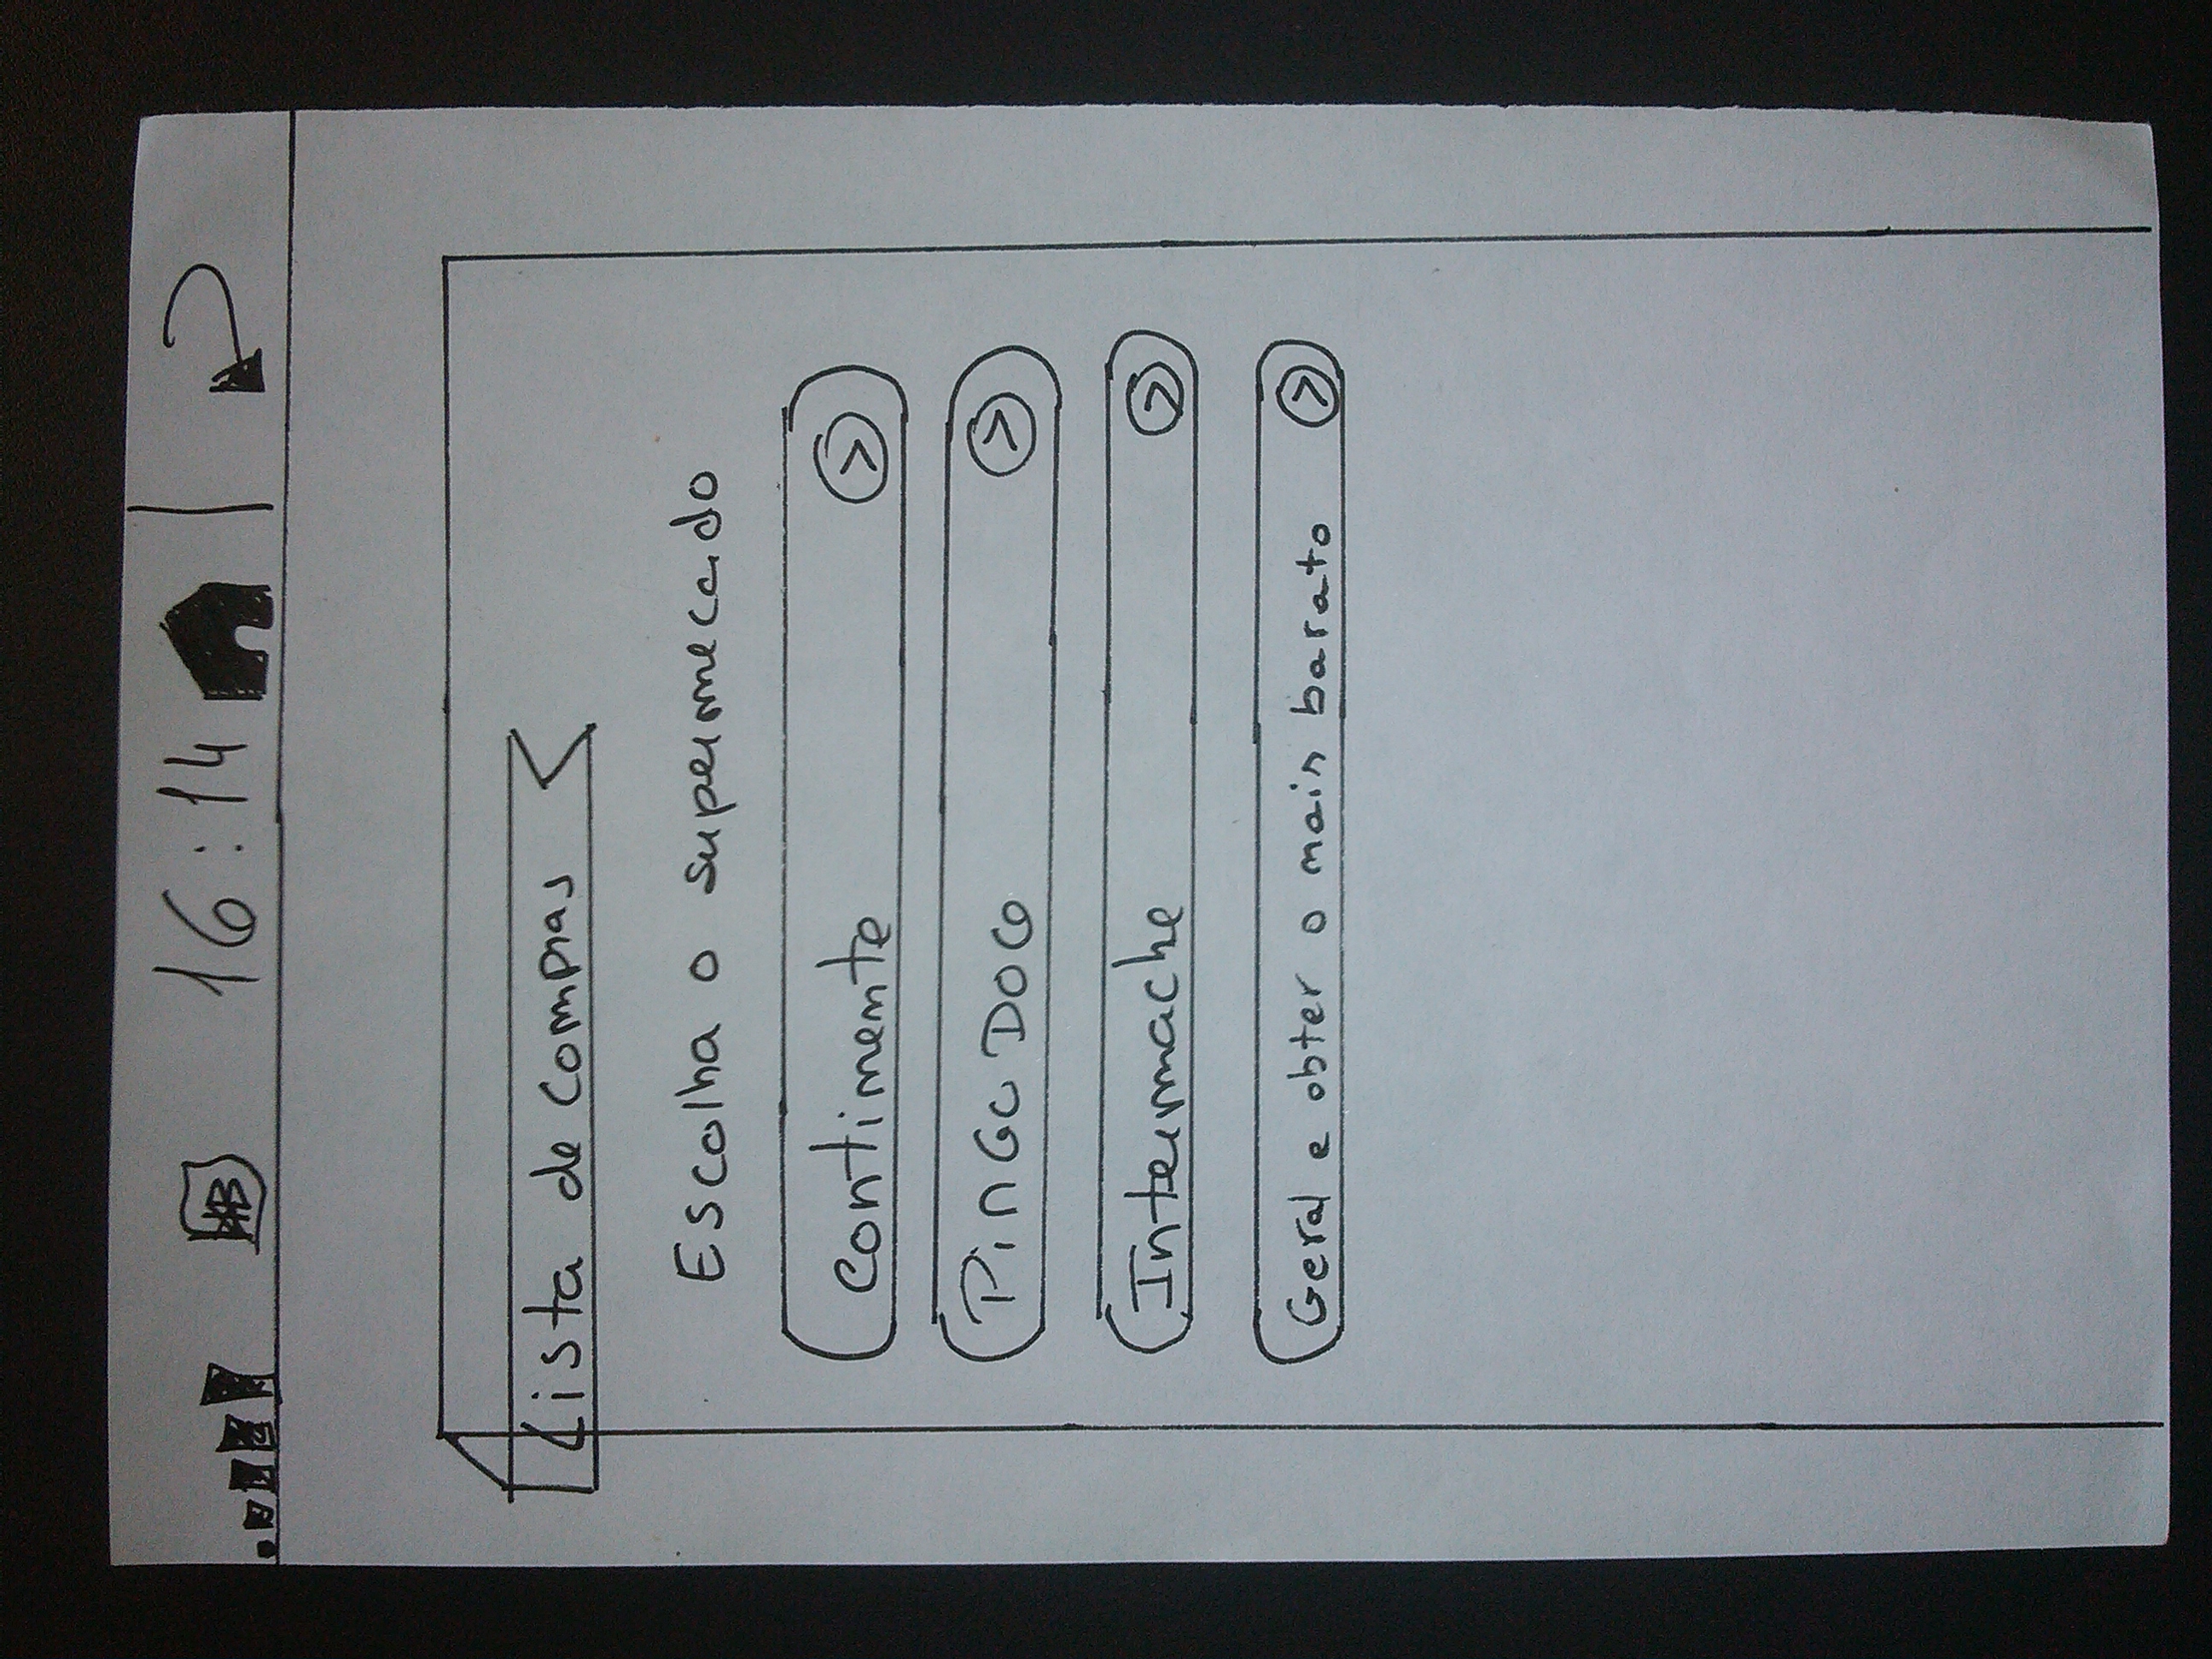 16:14
Lista de compras
Escolha o supermercado
Continente
PinGo DOCO
Intermache
Geral e obter o main barato